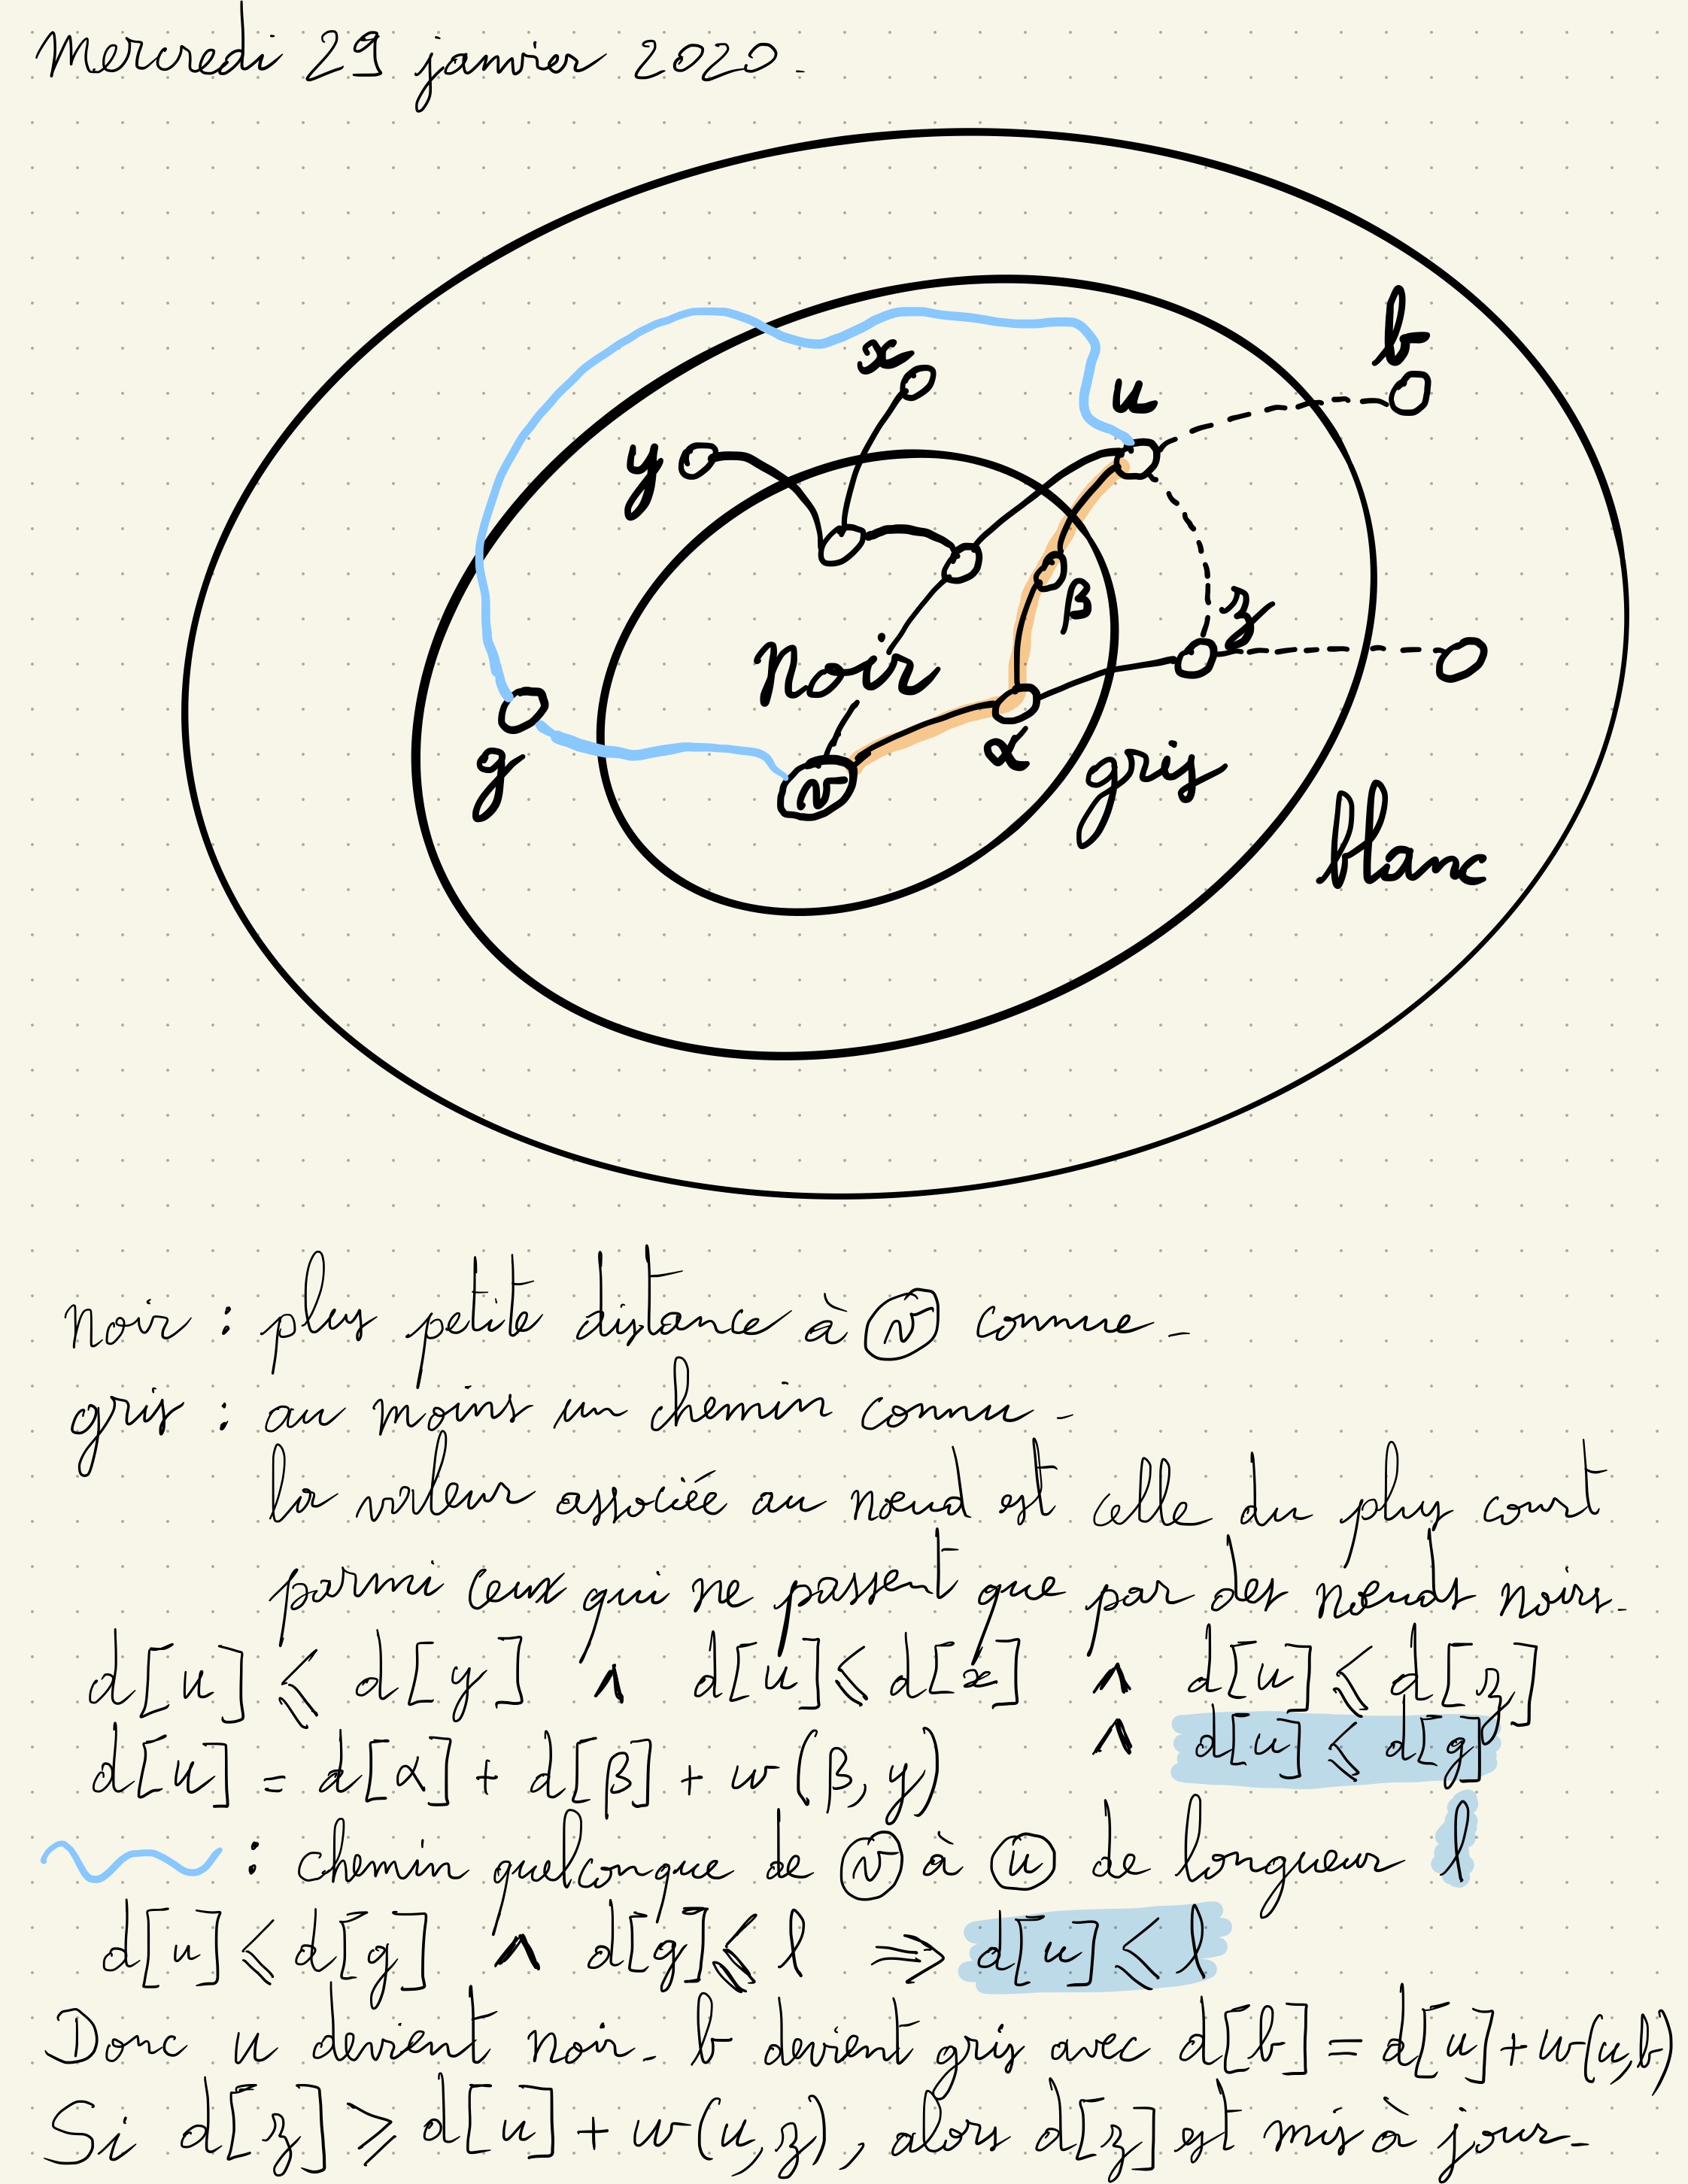 Mercredi 29 janvier 2020.
b
x
u
y
β
z
Noir
α
g
v
gris
blanc
noir : plus petite distance à v connue.
gris : au moins un chemin connu.
la valeur associée au nœud est celle du plus court
parmi ceux qui ne passent que par des nœuds noirs.
d[u] ⩽ d[y] ∧ d[u] ⩽ d[x] ∧ d[u] ⩽ d[z]
∧ d[u] ⩽ d[g]
d[u] = d[α] + d[β] + w(β, y)
: chemin quelconque de v à u de longueur l
d[u] ⩽ d[g] ∧ d[g] ⩽ l ⇒ d[u] ⩽ l
Donc u devient noir. b devient gris avec d[b] = d[u] + w(u,b)
Si d[z] ⩾ d[u] + w(u,z), alors d[z] est mis à jour.